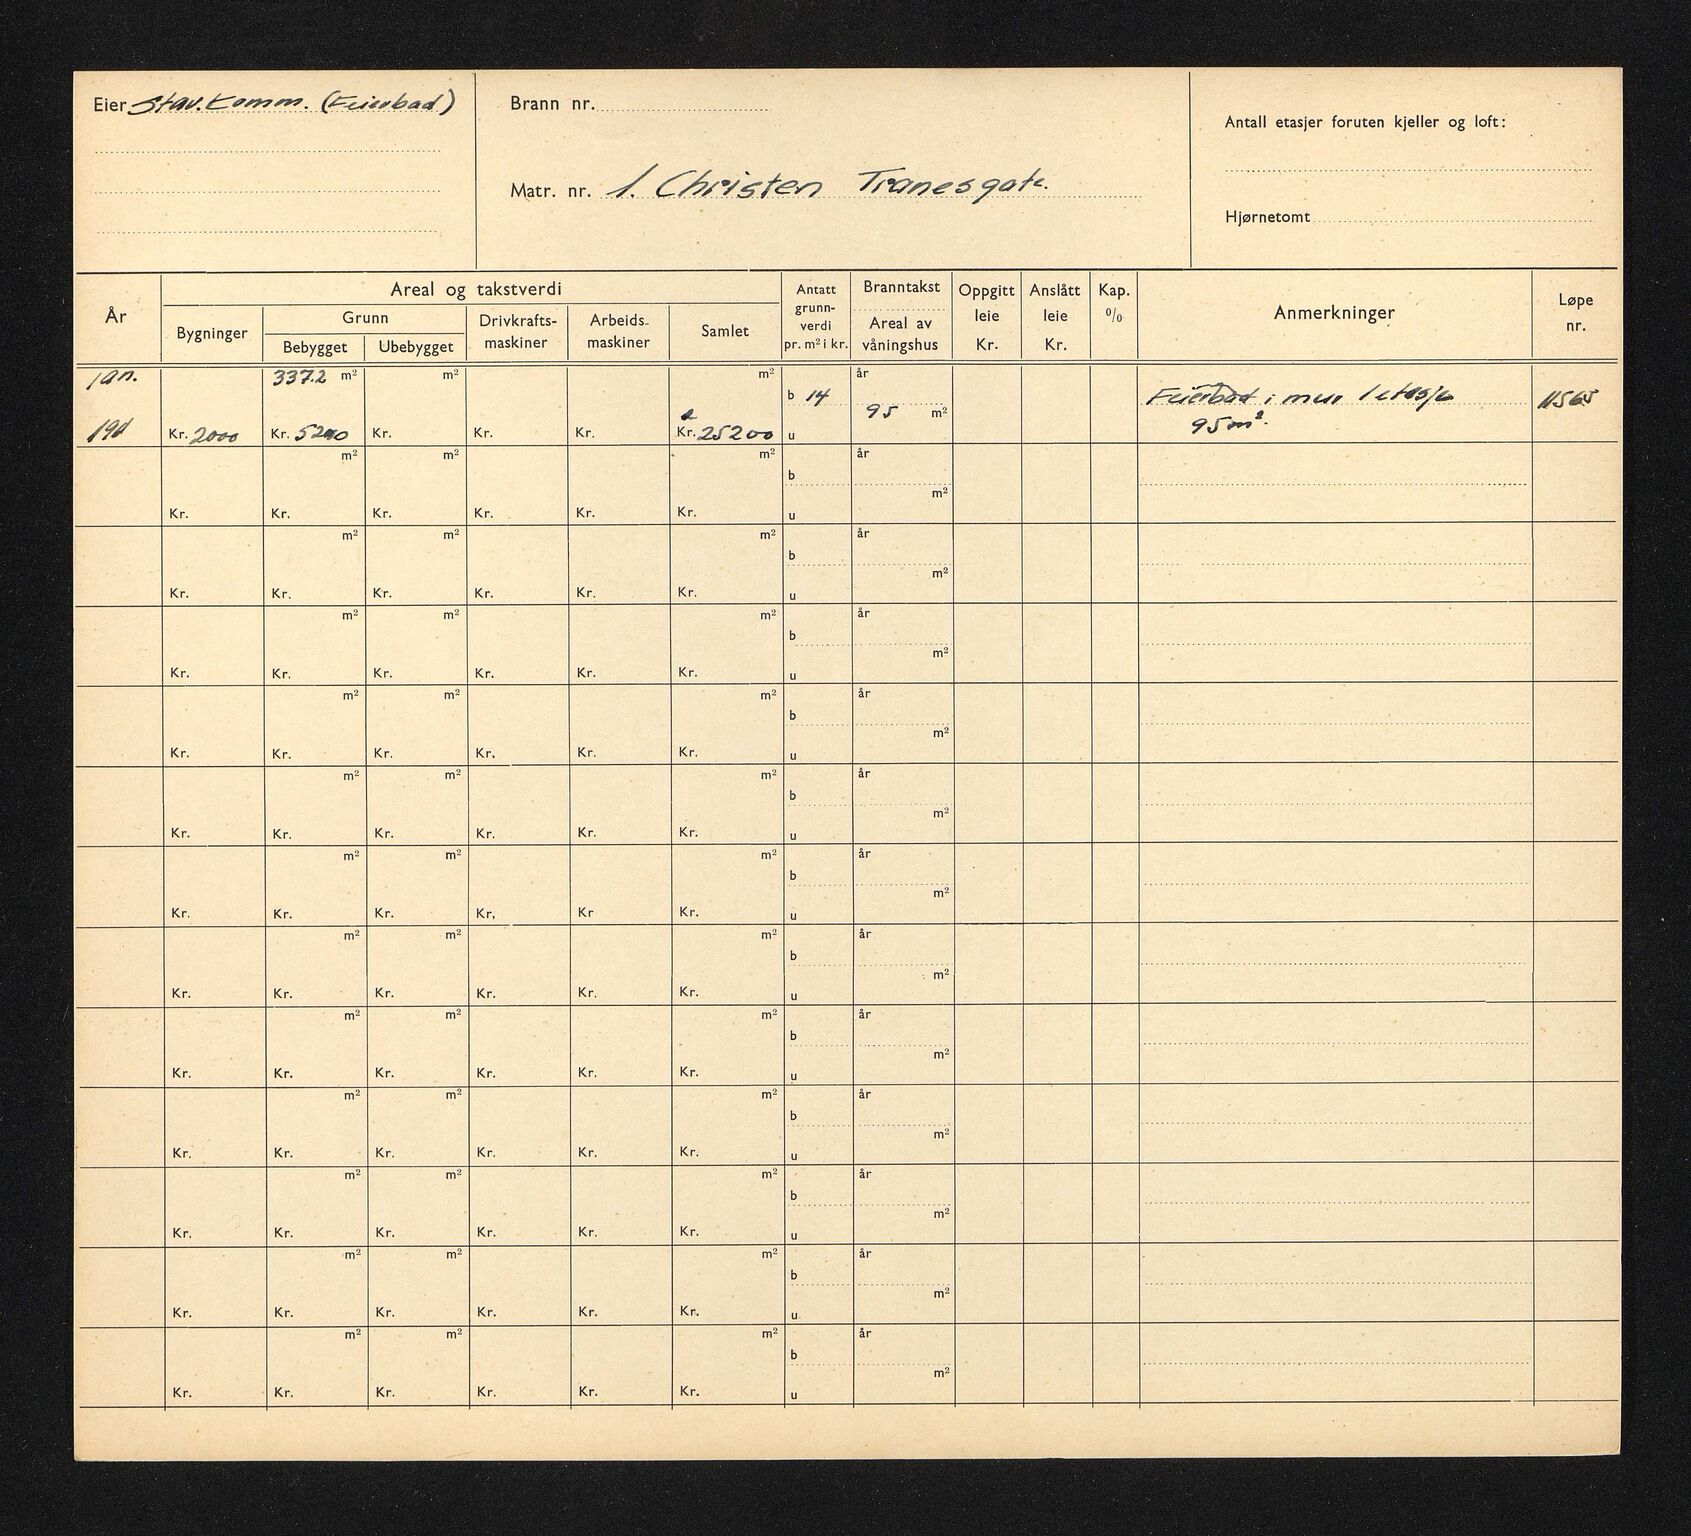 Eier Stav. Komm. (Feierbad)
Brann nr.
Matr. nr. 1. Christen Tranesgate.
Antall etasjer foruten kjeller og loft:
Hjørnetomt
År
Areal og takstverdi
Bygninger
Grunn
Bebygget
Ubebygget
Drivkrafts-
maskiner
Arbeids-
maskiner
Samlet
Antatt
grunn-
verdi
pr. m² i kr.
Branntakst
Areal av
våningshus
Oppgitt
leie
Kr.
Anslått
leie
Kr.
Kap.
%
Anmerkninger
Løpe
nr.
Jan. 337.2 m² m² m² år
b 14 Feierbad i mur 1 etasje 11565
95 m²
Kr. 2000 Kr. Kr. Kr. Kr. Kr. 25200 u 95 m².
m² m² m² år
b
m²
Kr. Kr. Kr. Kr. Kr. Kr. u
m² m² m² år
b
m²
Kr. Kr. Kr. Kr. Kr. Kr. u
m² m² m² år
b
m²
Kr. Kr. Kr. Kr. Kr. Kr. u
m² m² m² år
b
m²
Kr. Kr. Kr. Kr. Kr. Kr. u
m² m² m² år
b
m²
Kr. Kr. Kr. Kr. Kr. Kr. u
m² m² m² år
b
m²
Kr. Kr. Kr. Kr, Kr Kr. u
m² m² m² år
b
m²
Kr. Kr. Kr. Kr. Kr. Kr. u
m² m² m² år
b
m²
Kr. Kr. Kr. Kr. Kr. Kr. u
m² m² m² år
b
m²
Kr. Kr. Kr. Kr. Kr. Kr. u
m² m² m² år
b
m²
Kr. Kr. Kr. Kr. Kr. Kr. u
m² m² m² år
b
m²
Kr. Kr. Kr. Kr. Kr. Kr. u
m² m² m² år
b
m²
Kr. Kr. Kr. Kr. Kr. Kr. u